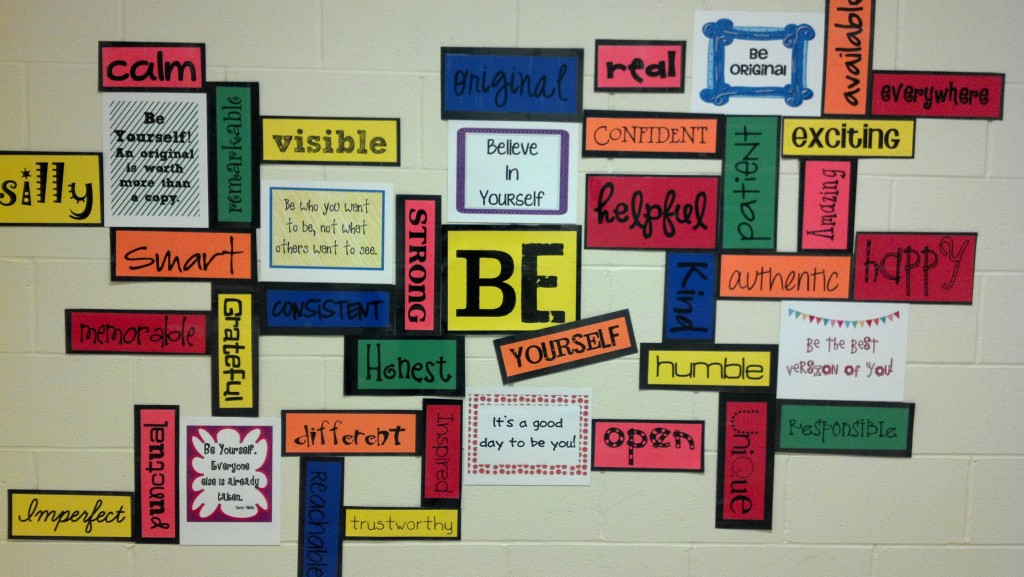 calm
original
real
Be
Original
available
everywhere
Be
Yourself!
An original
is worth
more than
a copy.
remarkable
visible
Believe
In
Yourself
CONFIDENT
patient
exciting
silly
Be who you want
to be, not what
others want to see.
STRONG
helpful
Amazing
smart
BE
Kind
authentic
happy
memorable
Grateful
CONSISTENT
Honest
YOURSELF
humble
Be the Best
version of you!
punctual
Be Yourself.
Everyone
else is already
taken.
different
Inspired
It's a good
day to be you!
open
Unique
Responsible
Imperfect
Reachable
trustworthy